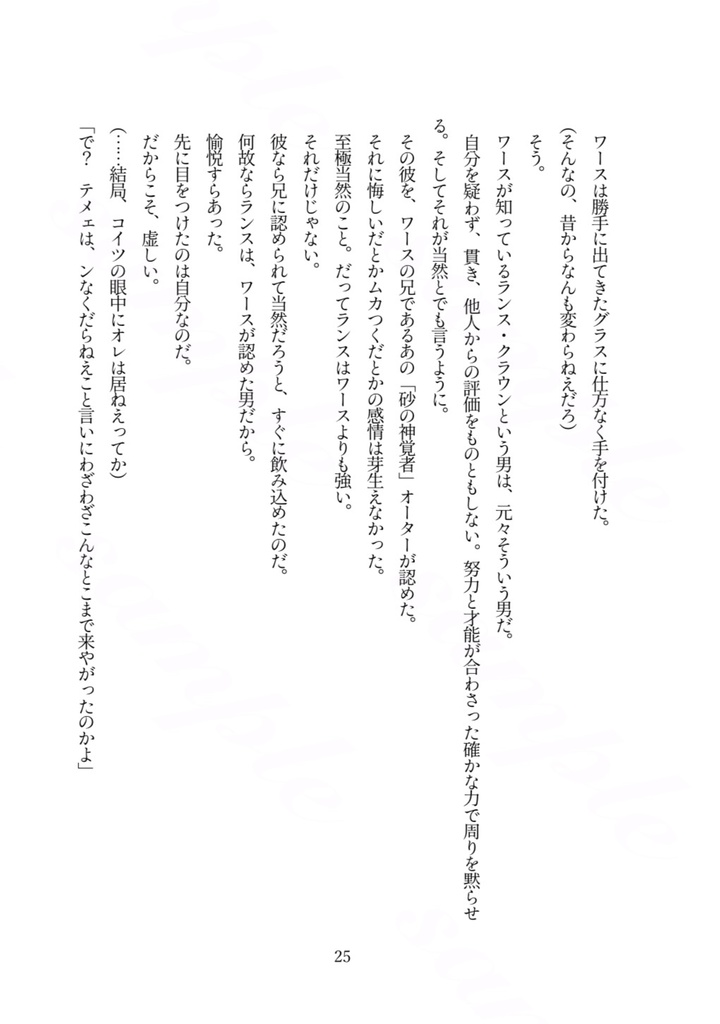 ワースは勝手に出てきたグラスに仕方なく手を付けた。
(そんなの、昔からなんも変わらねえだろ)
そう。
ワースが知っているランス・クラウンという男は、元々そういう男だ。
自分を疑わず、貫き、他人からの評価をものともしない。努力と才能が合わさった確かな力で周りを黙らせ
る。そしてそれが当然とでも言うように。
その彼を、ワースの兄であるあの「砂の神覚者」オーターが認めた。
それに悔しいだとかムカつくだとかの感情は芽生えなかった。
至極当然のこと。だってランスはワースよりも強い。
それだけじゃない。
彼なら兄に認められて当然だろうと、すぐに飲み込めたのだ。
何故ならランスは、ワースが認めた男だから。
愉悦すらあった。
先に目をつけたのは自分なのだ。
だからこそ、虚しい。
(……結局、コイツの眼中にオレは居ねえってか)
「で?　テメェは、ンなくだらねえこと言いにわざわざこんなとこまで来やがったのかよ」
25
sample
sample
sample
sample
sample